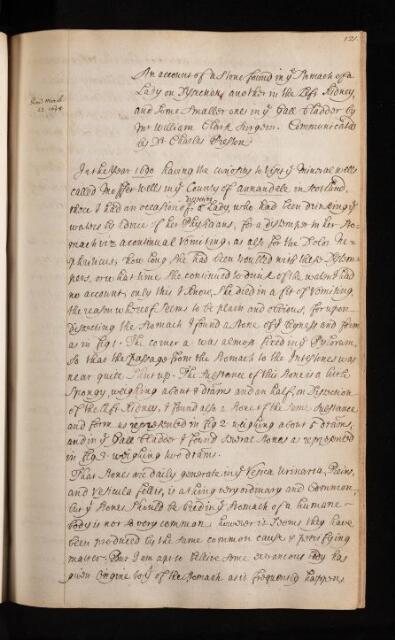 121
An account of a Stone found in yͤ Stomach of a
Lady on Dissection, another in the Left Kidney
and Some Smaller ones in yͤ Gall Bladder by
Mr William Clerk Surgeon. Communicated
by Dr Charles Preston
Read March
In the year 1690 having the curiosity to visit yͤ Mineral wells
called Moffet wells in yͤ County of Annandale in Scotland,
there I had an occasion of a Lady, who had been drinking yͤ
waters by advice of her Physicians, for a distemper in her Sto-
mach viz a continual Vomiting, as also for the Dolor Ne-
phriticus; how long She had been troubled with these Distem-
pers, or what time She continued to drink of the waters I had
no account, only this I know, She died in a fit of Vomiting
the reason whereof Seems to be plain and obvious, for upon
dissecting the Stomach I found a Stone of yͤ bigness and form
as in fig 1. The corner a was almost fixed in yͤ Pylorum,
So that the passage from the Stomach to the Intestines was
near quite Shut up. The Substance of this Stone is a little
Spongy, weighing about 8 drams and an half, on Dissection
of the Left Kidney, I found also a Stone of the Same Substance
and form as represented in fig 2 weighing about 5 drams,
and in yͤ Gall bladder I found Several Stones as represented
in fig 3. weighing two drams.
That Stones are daily generate in yͤ Vesica Urinaria, Reins,
and Vesicula fellis, is a thing very ordinary and Common,
but yͤ Stones Should be bred in yͤ Stomach of a humane
body is not So very common however it Seems they have
been produced by the Same common cause &
matter. But I am apt to believe Some extraneous body has
given Origine to yͤ of the Stomach as it frequently happens